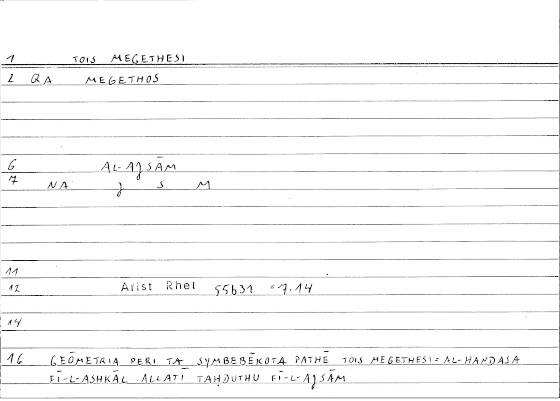 1 TOIS MEGETHESI
2 QA MEGETHOS
6 AL-AJSĀM
7 NA J S M
11
12 Arist Rhet 55b31 = 7.14
14
16 GEŌMETRIA PERI TA SYMBEBĒKOTA PATHĒ TOIS MEGETHESI = AL-HANDASA
FĪ-L-ASHKĀL ALLATĪ TAḤDUTHU FĪ-L-AJSĀM